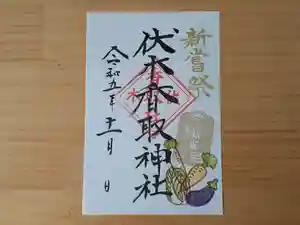 新嘗祭
伏木香取神社
令和五年十一月 日